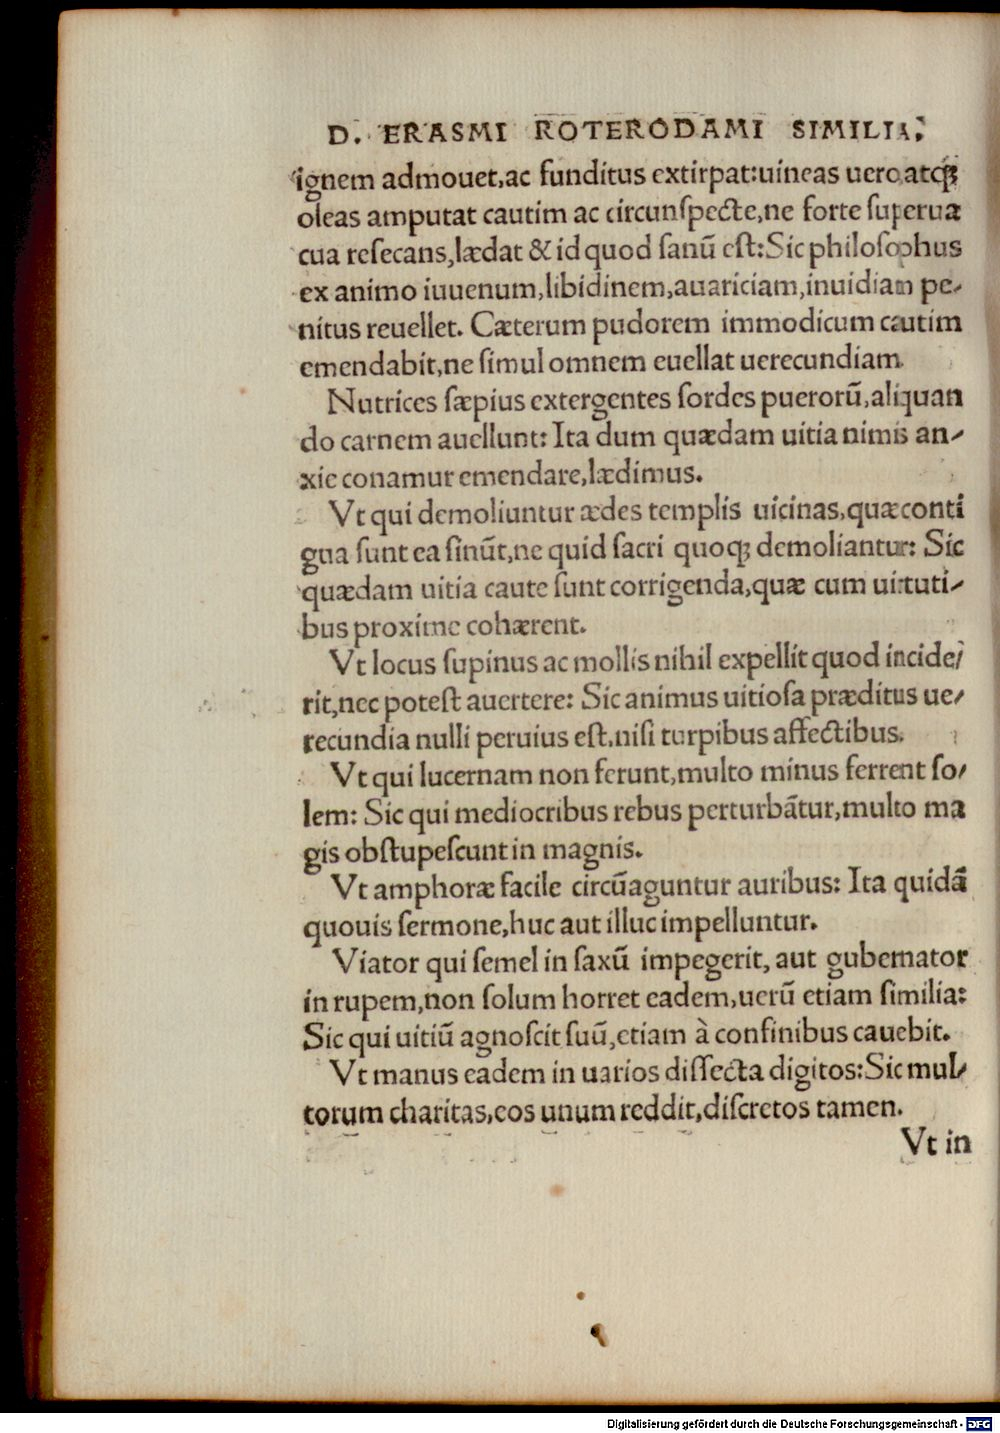 D. ERASMI ROTERODAMI SIMILIA.
ignem admouet,ac funditus extirpat:uineas uero atqꝫ
oleas amputat cautim ac circunſpecte,ne forte ſuperua
cua reſecans,lædat & id quod ſanū eſt:Sic philoſophus
ex animo iuuenum,libidinem,auariciam,inuidiam pe-
nitus reuellet. Cæterum pudorem immodicum cautim
emendabit,ne ſimul omnem euellat uerecundiam.
Nutrices ſæpius extergentes ſordes puerorū,aliquan
do carnem auellunt: Ita dum quædam uitia nimis an-
xie conamur emendare,lædimus.
Vt qui demoliuntur ædes templis uicinas,quæ conti
gua ſunt ea ſinūt,ne quid ſacri quoqꝫ demoliantur: Sic
quædam uitia caute ſunt corrigenda,quæ cum uirtuti-
bus proxime cohærent.
Vt locus ſupinus ac mollis nihil expellit quod incide-
rit,nec poteſt auertere: Sic animus uitioſa præditus ue-
recundia nulli peruius eſt,niſi turpibus affectibus.
Vt qui lucernam non ferunt,multo minus ferrent ſo-
lem: Sic qui mediocribus rebus perturbātur,multo ma
gis obſtupeſcunt in magnis.
Vt amphoræ facile circūaguntur auribus: Ita quidā
quouis ſermone,huc aut illuc impelluntur.
Viator qui ſemel in ſaxū impegerit, aut gubernator
in rupem,non ſolum horret eadem,uerū etiam ſimilia:
Sic qui uitiū agnoſcit ſuū,etiam à confinibus cauebit.
Vt manus eadem in uarios diſſecta digitos:Sic mul-
torum charitas,eos unum reddit,diſcretos tamen.
Vt in
Digitalisierung gefördert durch die Deutsche Forschungsgemeinschaft - DFG